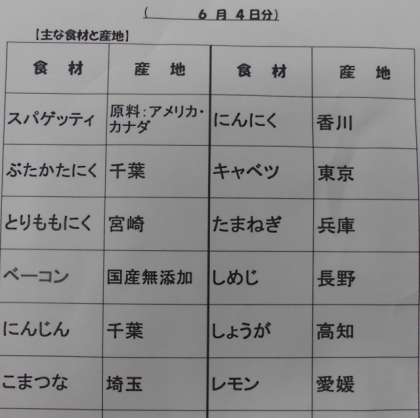 ( 6 月 4 日分)
【主な食材と産地】
食 材 産 地 食 材 産 地
スパゲッティ 原料：アメリカ・カナダ にんにく 香川
ぶたかたにく 千葉 キャベツ 東京
とりももにく 宮崎 たまねぎ 兵庫
ベーコン 国産無添加 しめじ 長野
にんじん 千葉 しょうが 高知
こまつな 埼玉 レモン 愛媛